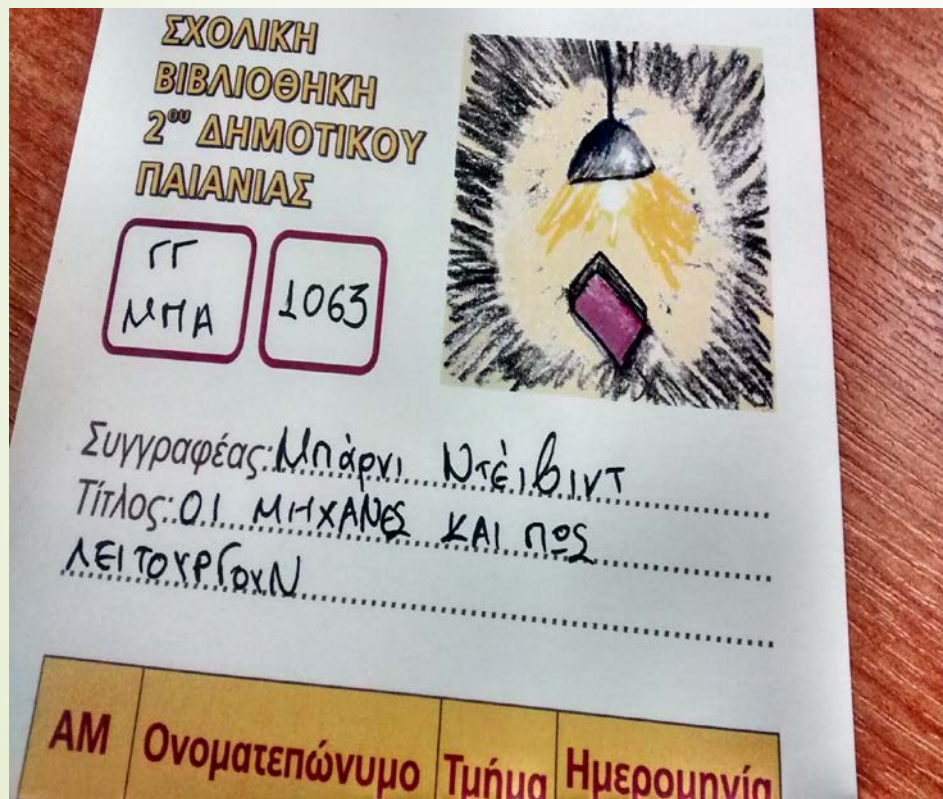 ΣΧΟΛΙΚΗ
ΒΙΒΛΙΟΘΗΚΗ
2ου ΔΗΜΟΤΙΚΟΥ
ΠΑΙΑΝΙΑΣ
ΓΓ
ΜΠΑ
1063
Συγγραφέας: Μπάρνι Ντέιβιντ
Τίτλος: ΟΙ ΜΗΧΑΝΕΣ ΚΑΙ ΠΩΣ
ΛΕΙΤΟΥΡΓΟΥΝ
ΑΜ Ονοματεπώνυμο Τμήμα Ημερομηνία